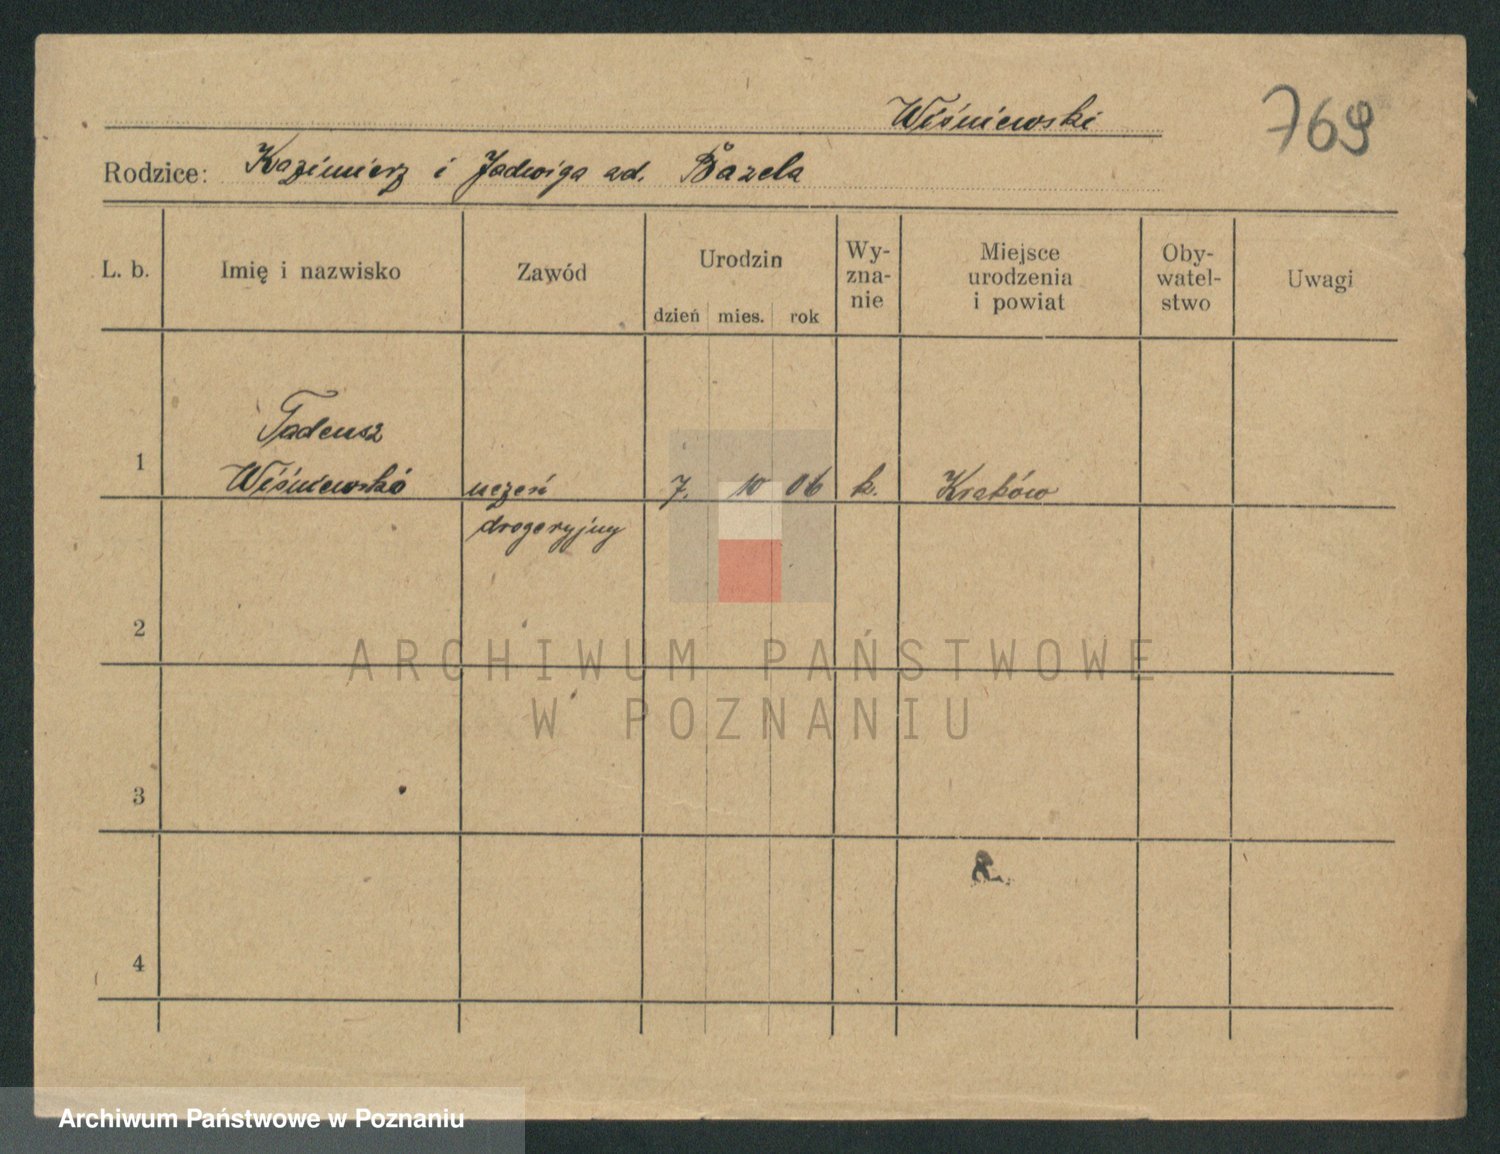 Wiśniewski
769
Rodzice: Kazimierz i Jadwiga zd. Bazela
L. b. Imię i nazwisko Zawód Urodzin dzień mies. rok Wy-zna-nie Miejsce urodzenia i powiat Oby-watel-stwo Uwagi
Tadeusz
1 Wiśniewski uczeń 7. 10 06 k. Kraków
drogeryjny
2
ARCHIWUM PAŃSTWOWE
W POZNANIU
3
4
Archiwum Państwowe w Poznaniu